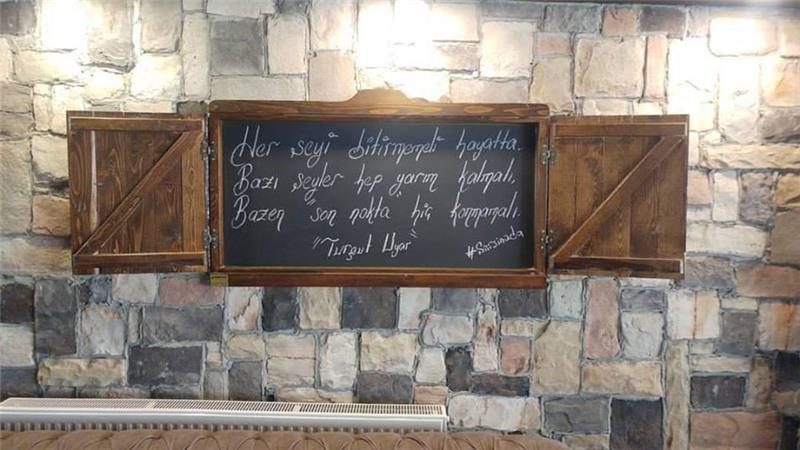 Her şeyi bitirmemeli hayatta.
Bazı şeyler hep yarım kalmalı,
Bazen "son nokta" hiç konmamalı.
"Turgut Uyar"
#Siirsinada